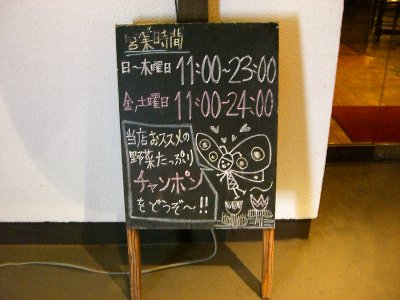 営業時間
日～木曜日 11:00～23:00
金,土曜日 11:00～24:00
当店おススメの
野菜たっぷり
チャンポン
をどうぞ～!!